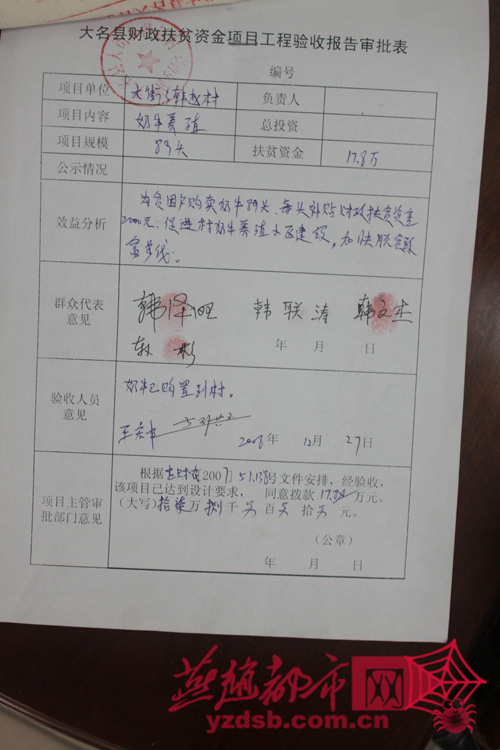 大名县财政扶贫资金项目工程验收报告审批表
编号
项目单位 大街乡韩赵村 负责人
项目内容 奶牛养殖 总投资
项目规模 89头 扶贫资金 17.8万
公示情况
效益分析
为贫困户购买奶牛89头、每头补贴财政扶贫资金
2000元;促进村奶牛养殖小区建设,加快脱贫致
富步伐。
群众代表
意见
韩泽 韩联涛 韩文杰
彬
年 月 日
验收人员
意见
奶牛已购置到村。
2008年 12月 27日
项目主管审
批部门意见
根据 财 2007 号文件安排,经验收,
该项目已达到设计要求, 同意拨款 17.8万元。
(大写)拾柒万 捌千 百 拾 元。
(公章)
年 月 日
燕赵都市网
yzdsb.com.cn